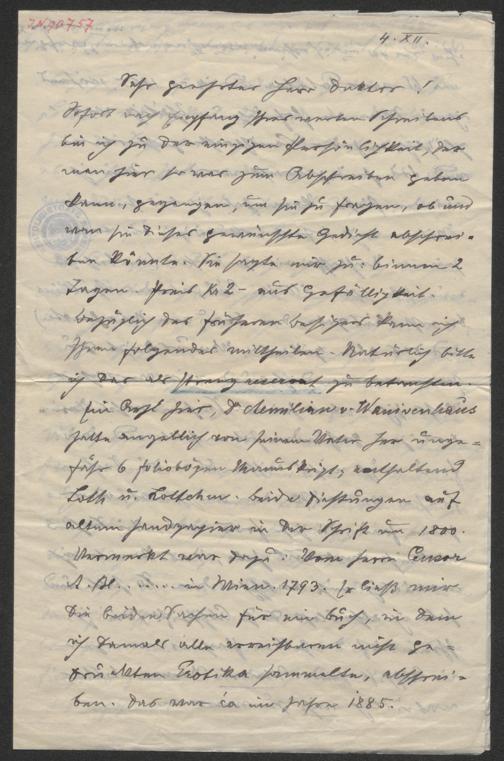 I.N. 90757
4. XII.
Sehr geehrter Herr Doktor!
Sofort nach Empfang Ihres werten Schreibens
bin ich zu der einzigen Persönlichkeit, der
man hier so was zum Abschreiben geben
kann, gegangen, um sie zu fragen, ob und
wann sie dieses gewünschte Gedicht abschrei-
ben könnte. Sie sagte mir zu: binnen 2
Tagen. Preis K 2- aus Gefälligkeit.
Bezüglich des früheren Besitzers kann ich
Ihnen folgendes mittheilen. Natürlich bitte
ich das als streng reservat zu betrachten.
Ein Arzt hier, Dr Aemilian v. Wanivenhaus
hatte angeblich von seinem Vater her unge-
fähr 6 Foliobogen Manuskript, enthaltend
Loth u. Lottchen. Beide Dichtungen auf
altem Handpapier in der Schrift um 1800.
Vermerkt war dazu: Vom Herrn Censor
Bl..... in Wien. 1793. Er ließ mir
die beiden Sachen für ein Buch, in dem
ich damals alle erreichbaren nicht ge-
druckten Erotika sammelte, abschrei-
ben. Das war ca im Jahre 1885.